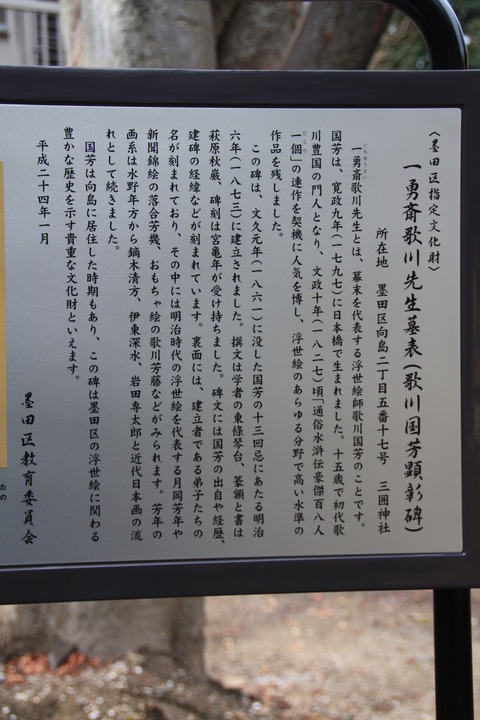 〈墨田区指定文化財〉
一勇斎歌川先生墓表(歌川国芳顕彰碑)
所在地　墨田区向島二丁目五番十七号　三囲神社
いちゆうさい
一勇斎歌川先生とは、幕末を代表する浮世絵師歌川国芳のことです。
国芳は、寛政九年(一七九七)に日本橋で生まれました。十五歳で初代歌
川豊国の門人となり、文政十年(一八二七)頃「通俗水滸伝豪傑百八人
ひとり
一個」の連作を契機に人気を博し、浮世絵のあらゆる分野で高い水準の
作品を残しました。
この碑は、文久元年(一八六一)に没した国芳の十三回忌にあたる明治
六年(一八七三)に建立されました。撰文は学者の東條琴台、篆額と書は
萩原秋巌、碑刻は宮亀年が受け持ちました。碑文には国芳の出自や経歴、
建碑の経緯などが刻まれています。裏面には、建立者である弟子たちの
名が刻まれており、その中には明治時代の浮世絵を代表する月岡芳年や
新聞錦絵の落合芳幾、おもちゃ絵の歌川芳藤などがみられます。芳年の
画系は水野年方から鏑木清方、伊東深水、岩田専太郎と近代日本画の流
れとして続きました。
国芳は向島に居住した時期もあり、この碑は墨田区の浮世絵に関わる
豊かな歴史を示す貴重な文化財といえます。
平成二十四年一月
墨田区教育委員会
たの